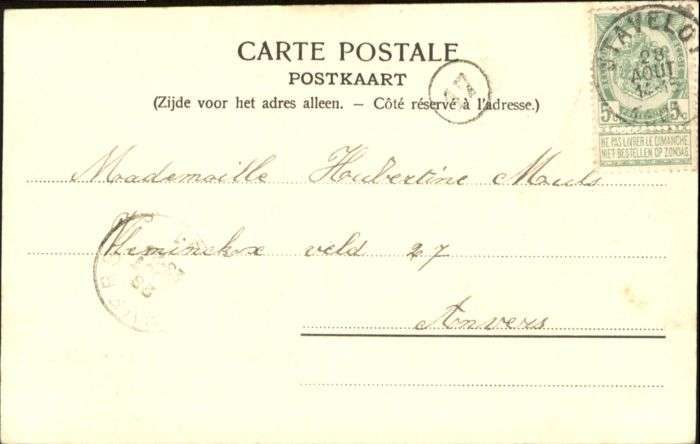 CARTE POSTALE
POSTKAART
(Zijde voor het adres alleen. — Côté réservé à l'adresse.)
STAVELOT
28
AOUT
5 5
NE PAS LIVRER LE DIMANCHE
NIET BESTELLEN OP ZONDAG
Mademoiselle Hubertine Muls
Vleminckx veld 27
Anvers